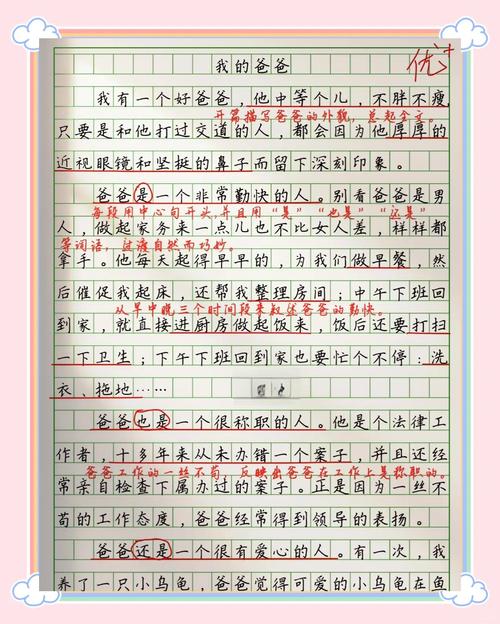 我的爸爸
优+
我有一个好爸爸,他中等个儿,不胖不瘦,
开篇描写爸爸的外貌,总起全文。
只要是和他打过交道的人,都会因为他厚厚的
近视眼镜和坚挺的鼻子而留下深刻印象。
爸爸是一个非常勤快的人。别看爸爸是男
每段用中心句开头,并且用“是”“也是”“还是”
人,做起家务来一点儿也不比女人差,样样都
等词语,过渡自然而巧妙。
拿手。他每天起得早早的,为我们做早餐,然
后催促我起床,还帮我整理房间;中午下班回
从早中晚三个时间段来叙述爸爸的勤快。
到家,就直接进厨房做起饭来,饭后还要打扫
一下卫生;下午下班回到家也要忙个不停:洗
衣、拖地……
爸爸也是一个很称职的人。他是个法律工
作者,十多年来从未办错一个案子,并且还经
爸爸工作的一丝不苟,反映出爸爸在工作上是称职的。
常亲自检查下属办过的案子。正是因为一丝不
苟的工作态度,爸爸经常得到领导的表扬。
爸爸还是一个很有爱心的人。有一次,我
养了一只小乌龟,爸爸觉得可爱的小乌龟在鱼